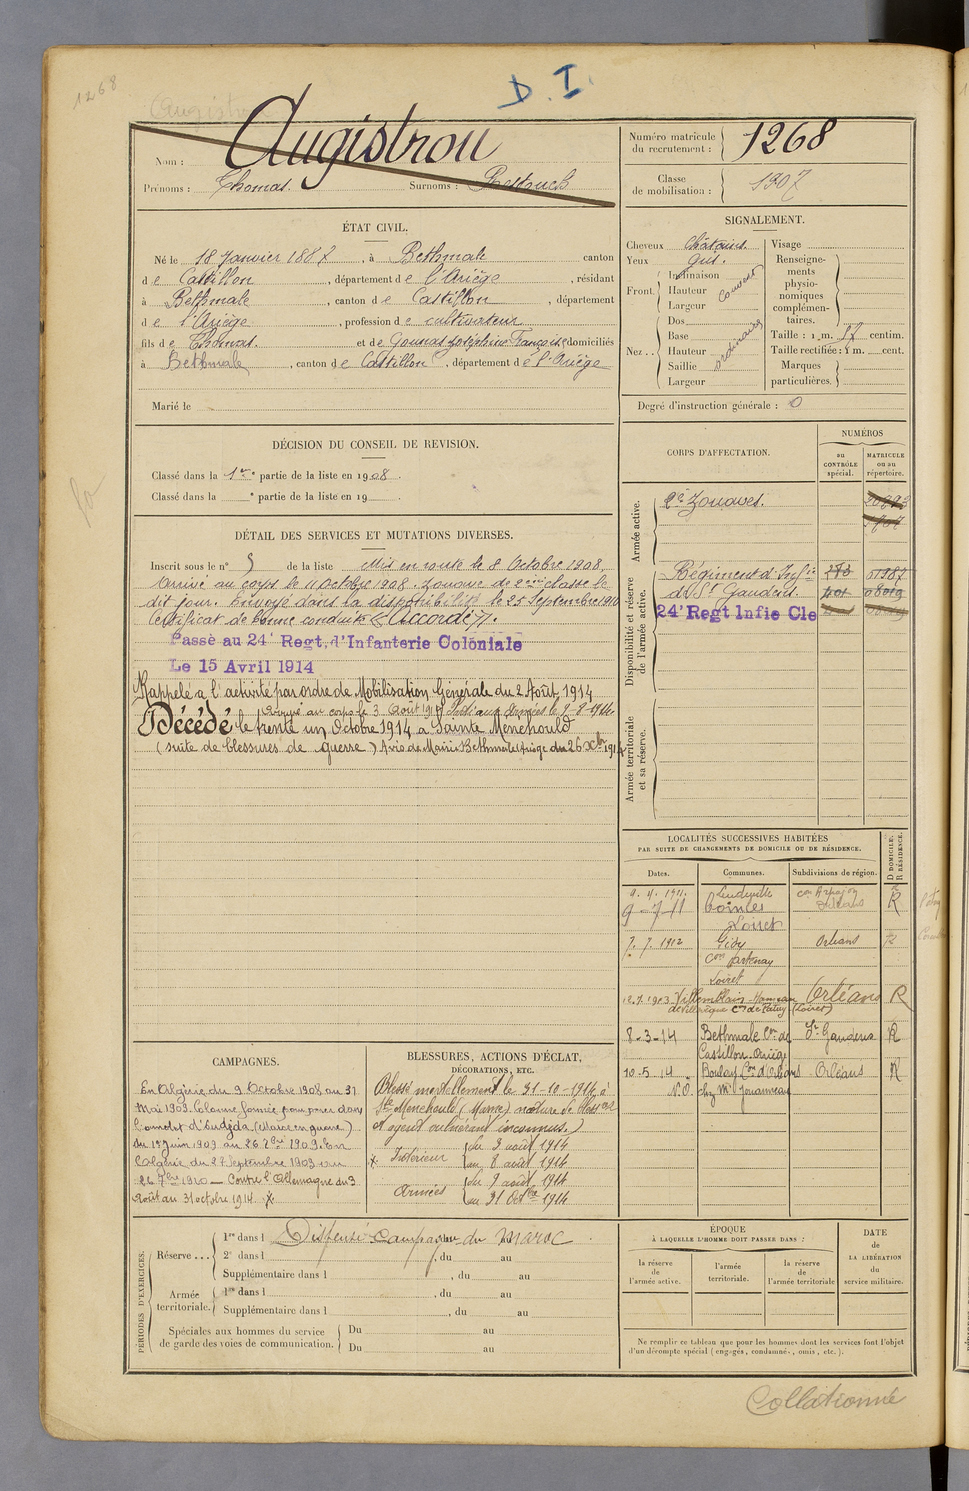 1268
D. I.
Augistrou
Nom :
Prénoms : Thomas. Surnoms :
Numéro matricule du recrutement : 1268
Classe de mobilisation : 1907
ÉTAT CIVIL.
Né le 18 Janvier 1887, à Bethmale canton
de Castillon, département de l'Ariège, résidant
à Bethmale, canton de Castillon, département
de l'Ariège, profession de cultivateur
fils de Thomas. et de Gounas Joséphine Françoise, domiciliés
à Bethmale, canton de Castillon, département de l'Ariège
Marié le
SIGNALEMENT.
Cheveux châtains.
Yeux gris.
Front. Inclinaison
Hauteur couvert
Largeur
Nez.. Dos
Base
Hauteur ordinaire
Saillie
Largeur
Visage
Renseignements physionomiques complémentaires.
Taille : 1 m. 57 centim.
Taille rectifiée : 1 m. cent.
Marques particulières.
Degré d'instruction générale : 0
DÉCISION DU CONSEIL DE REVISION.
Classé dans la 1re partie de la liste en 1908.
Classé dans la e partie de la liste en 19 .
DÉTAIL DES SERVICES ET MUTATIONS DIVERSES.
Inscrit sous le n° 5 de la liste Mis en route le 8 Octobre 1908,
Arrivé au corps le 11 Octobre 1908. Zouave de 2ème classe le
dit jour. Envoyé dans la disponibilité le 25 Septembre 1910
Certificat de bonne conduite « Accordé ».
Passé au 24e Regt. d'Infanterie Coloniale
Le 15 Avril 1914
Rappelé à l'activité par ordre de Mobilisation Générale du 2 Août 1914
Arrivé au corps le 3 Août 1914 aux armées le 9-8-1914
Décédé le trente un Octobre 1914 à Sainte Menehould
(suite de blessures de guerre) Avis de Mairie Bethmale Ariège du 26 Xbre 1914
CORPS D'AFFECTATION.
NUMÉROS
au CONTRÔLE spécial.
MATRICULE ou au répertoire.
Armée active.
2e Zouaves.
Disponibilité et réserve de l'armée active.
Régiment d'Infie
de St Gaudens.
24e Regt Infie Cle
Armée territoriale et sa réserve.
LOCALITÉS SUCCESSIVES HABITÉES
PAR SUITE DE CHANGEMENTS DE DOMICILE OU DE RÉSIDENCE.
Dates. Communes. Subdivisions de région. D DOMICILE. R RÉSIDENCE.
Leudeville con Arpajon
9-7-11 Coinces Orléans R
Loiret
7. 7. 1912 Gidy Orleans R
con Artenay
Loiret
Villemblain Hameau Orléans R
de Villeneuve Con de Patay (Loiret)
8-3-14 Bethmale Con de St Gaudens R
Castillon Ariège
10-5-14 Boulay Con d'Orléans Orléans R
chez Mr Jouanneau
CAMPAGNES.
En Algérie du 9 Octobre 1908 au 31
Mai 1909. Colonne formée pour parer dans
l'amalat d'Oudjda (Maroc en guerre)
du 1er Juin 1909 au 26 7bre 1909. En
Algérie du 27 Septembre 1909 au
26 7bre 1910 — Contre l'Allemagne du 3
Août au 31 octobre 1914. X
BLESSURES, ACTIONS D'ÉCLAT,
DÉCORATIONS, ETC.
Blessé mortellement le 31-10-1914 à
Ste Menehould (Marne) nature de blessures
et agent vulnérant inconnus.)
X Intérieur du 3 août 1914
au 8 août 1914
Armées du 9 août 1914
au 31 Octbre 1914
PÉRIODES D'EXERCICES.
Réserve ... 1re dans l Dispensé campagne du Maroc
2e dans l , du au
Supplémentaire dans l , du au
Armée territoriale. 1re dans l , du au
Supplémentaire dans l , du au
Spéciales aux hommes du service de garde des voies de communication. Du au
Du au
ÉPOQUE
À LAQUELLE L'HOMME DOIT PASSER DANS :
la réserve de l'armée active.
l'armée territoriale.
la réserve de l'armée territoriale
DATE de LA LIBÉRATION du service militaire.
Ne remplir ce tableau que pour les hommes dont les services font l'objet
d'un décompte spécial (engagés, condamnés, omis, etc.).
Collationné